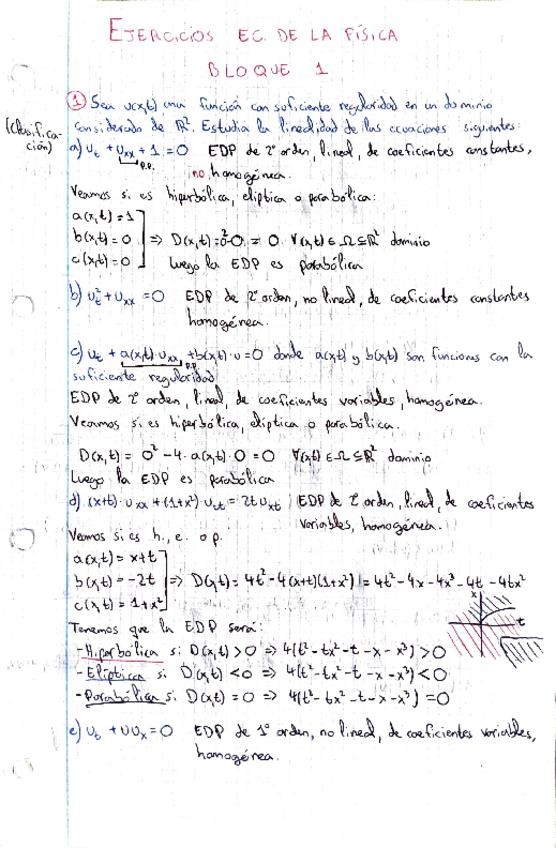 EJERCICIOS EC. DE LA FÍSICA
BLOQUE 1
(Clasificación)
① Sea u(x,t) una función con suficiente regularidad en un dominio
considerado de ℝ². Estudia la linealidad de las ecuaciones siguientes:
a) u_t + u_xx + 1 = 0 EDP de 2º orden, lineal, de coeficientes constantes,
P.P.
no homogénea.
Veamos si es hiperbólica, elíptica o parabólica:
a(x,t) = 1
b(x,t) = 0 ⇒ D(x,t) = 0²-0 = 0 ∀(x,t) ∈ Ω ⊆ ℝ² dominio
c(x,t) = 0 Luego la EDP es parabólica
b) u_t² + u_xx = 0 EDP de 2º orden, no lineal, de coeficientes constantes
homogénea.
c) u_t + a(x,t)·u_xx + b(x,t)·u = 0 donde a(x,t) y b(x,t) son funciones con la
P.P.
suficiente regularidad
EDP de 2º orden, lineal, de coeficientes variables, homogénea.
Veamos si es hiperbólica, elíptica o parabólica.
D(x,t) = 0² - 4·a(x,t)·0 = 0 ∀(x,t) ∈ Ω ⊆ ℝ² dominio
Luego la EDP es parabólica
d) (x+t)·u_xx + (1+x²)·u_tt = 2t u_xt EDP de 2º orden, lineal, de coeficientes
variables, homogénea.
Veamos si es h., e. o p.
a(x,t) = x+t
b(x,t) = -2t ⇒ D(x,t) = 4t² - 4(x+t)(1+x²) = 4t² - 4x - 4x³ - 4t - 4tx²
c(x,t) = 1+x²
x
t
Tenemos que la EDP será:
- Hiperbólica si D(x,t) > 0 ⇒ 4(t² - tx² - t - x - x³) > 0
- Elíptica si D(x,t) < 0 ⇒ 4(t² - tx² - t - x - x³) < 0
- Parabólica si D(x,t) = 0 ⇒ 4(t² - tx² - t - x - x³) = 0
e) u_t + u u_x = 0 EDP de 1º orden, no lineal, de coeficientes variables,
homogénea.